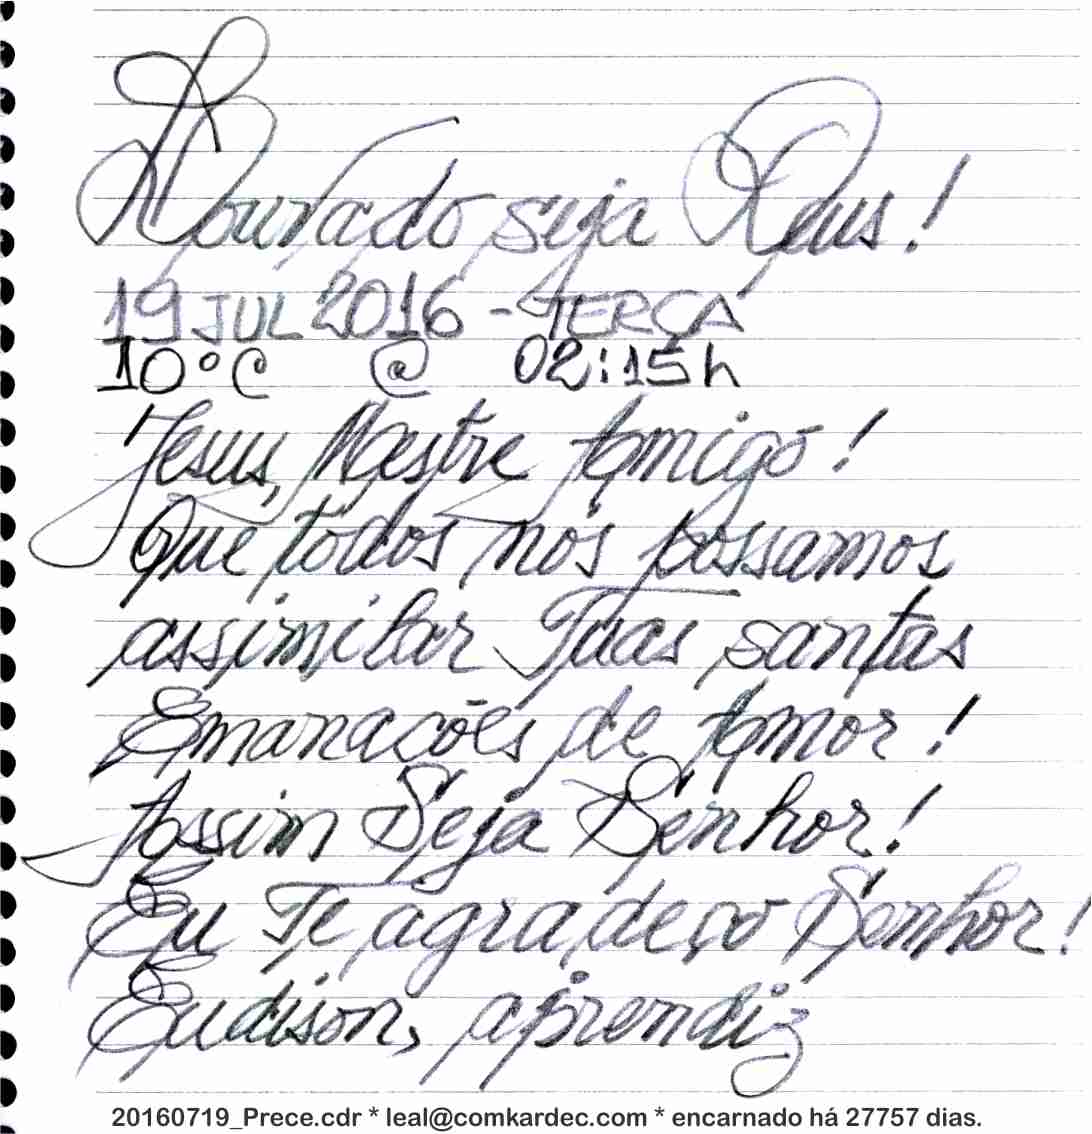 Louvado seja Deus!
19 JUL 2016 - TERÇA
10°C @ 02:15h
Jesus, Mestre Amigo!
Que todos nós possamos
assimilar Tuas santas
Emanações de Amor!
Assim Seja Senhor!
Eu Te agradeço Senhor!
Eudison, aprendiz
20160719_Prece.cdr * leal@comkardec.com * encarnado há 27757 dias.